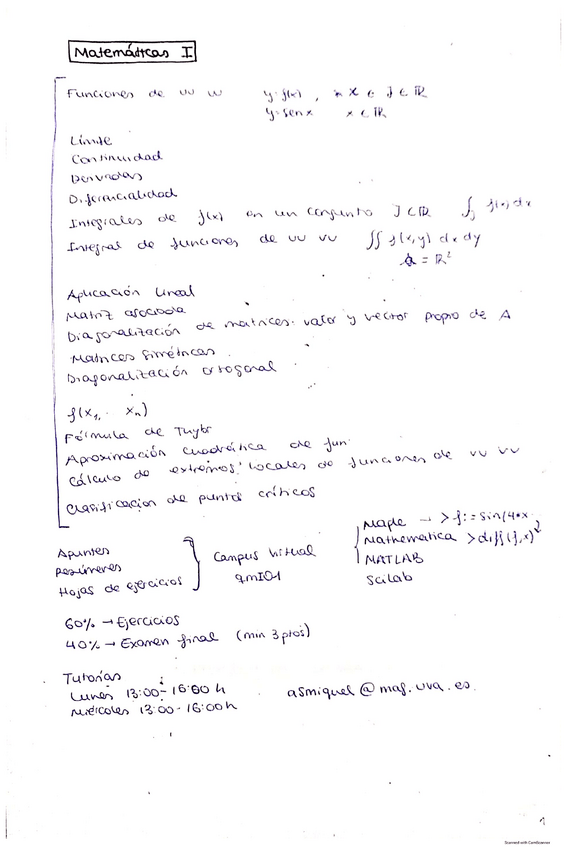 Matemáticas I
Funciones de vv vv y=f(x), x ∈ J ∈ ℝ
y=senx x ∈ ℝ
Límite
Continuidad
Derivadas
Diferencialidad
Integrales de f(x) en un conjunto J⊂ℝ ∫J f(x) dx
Integral de funciones de vv vv ∬ f(x,y) dx dy
= ℝ²
Aplicación lineal
Matriz asociada
Diagonalización de matrices. valor y vector propio de A
Matrices simétricas.
Diagonalización ortogonal
f(x₁, xₙ)
Fórmula de Taylor
Aproximación cuadrática de fun.
Cálculo de extremos locales de funciones de vv vv
Clasificacion de puntos críticos
Apuntes
Resúmenes
Hojas de ejercicios
Campus Virtual
qmI01
Maple → >f:=sin(4*x
Mathematica >diff(f,x)
MATLAB
Scilab
60% → Ejercicios
40% → Examen final (min 3 ptos)
Tutorías
Lunes 13:00-16:00 h
Miércoles 13:00-16:00h
asmiquel@maf.uva.es
1
Scanned with CamScanner